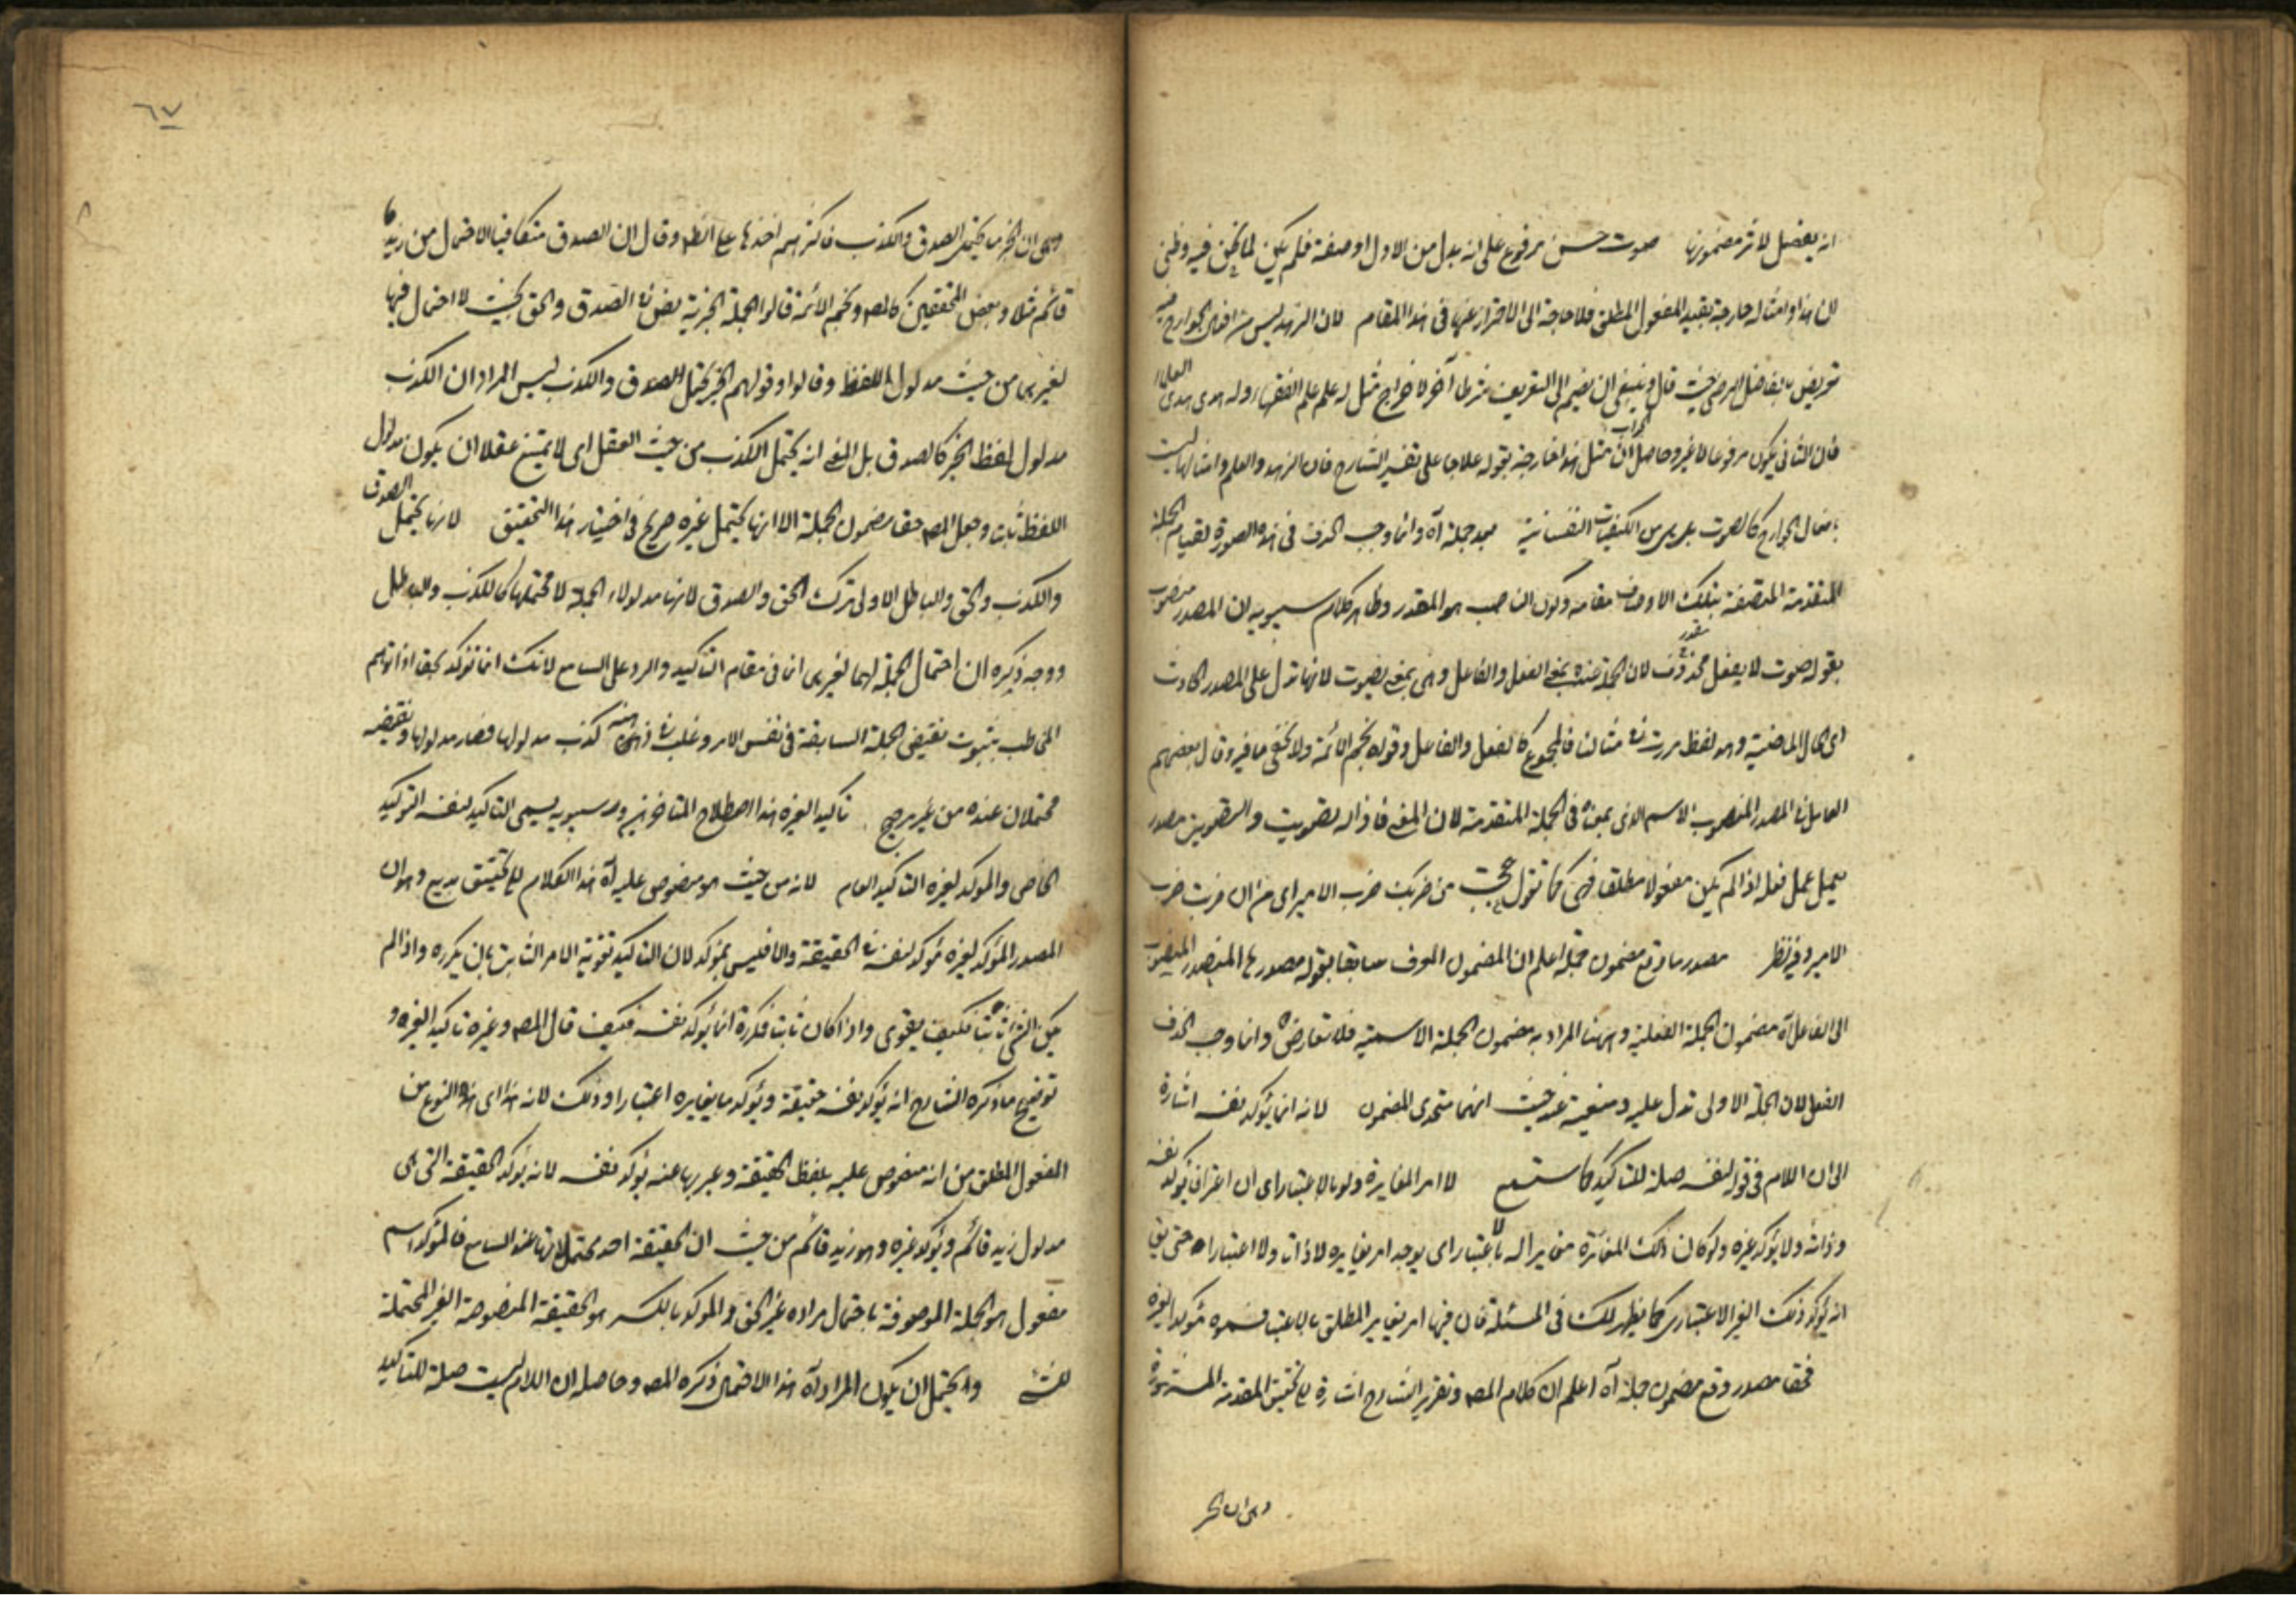 انه يفصل لاثر مضمونها صوت حسن مرفوع على انه بدل من الاول او صفة فلم يكن لما نحن فيه وظنى
لان هذا وامثاله خارجة بقيد المفعول المطلق فلا حاجة الى الاحتراز عنها فى هذا المقام لان الزهد ليس من افعال الجوارح فيه
تعريض بالفاضل الرضى حيث قال وينبغى ان يضم الى التعريف شرطا آخر لاخراج مثل له علم علم الفقهاء وله هدى هدى العلماء
فان الثانى يكون مرفوعا لا غير وحاصل الجواب ان مثل هذا خارجة بقوله علاجا على تفسير الشارح فان الزهد والعلم وامثالها ليست
بافعال الجوارح كالصوت بل هى من الكيفيات النفسانية بعد جملة آه وانما وجب الحذف فى هذه الصورة لقيام الجملة
المتقدمة المتصفة بتلك الاوصاف مقامه وكون الناصب هو المقدر وظاهر كلام سيبويه ان المصدر منصوب
بقوله صوت لا بفعل مقدر محذوف لان الجملة عنده بمعنى الفعل والفاعل وهى بمعنى يصوت لانها تدل على المصدر الحادث
اى الحال الماضية وهو لفظ مررت فى مثالنا فالمجموع كالفعل والفاعل وقواه نجم الائمة ولا يخفى ما فيه وقال بعضهم
العامل فى المصدر المنصوب الاسم الذى بمعناه فى الجملة المتقدمة لان المعنى فاذا له تصويت والتصويت مصدر
يعمل عمل فعله اذا لم يكن مفعولا مطلقا فهى كما تقول عجبت من ضربك ضرب الامير اى من ان ضربت ضرب
الامير وفيه نظر مصدر ما وقع مضمون جملة اعلم ان المضمون المعرف سابقا بقوله مصدرها المنصوب
الى الفاعل آه مضمون الجملة الفعلية وههنا المراد به مضمون الجملة الاسمية فلا تعارض وانما وجب الحذف
الفعل لان الجملة الاولى تدل عليه ومغنية عنه حيث انهما متحدى المضمون لانه انما يؤكد نفسه اشارة
الى ان اللام فى قوله لنفسه صلة للتاكيد كما ستسمع لا امر المغايرة ولو بالاعتبار اى ان اعترافا يؤكد نفسه
وذاته ولا يؤكد غيره ولو كان ذلك المغايرة مغايرا له بالاعتبار اى يوجد امر يغايره لا ذات ولا اعتبارا حتى يق
انه يؤكد ذلك الغير الاعتبارى كما يظهر لك فى المسئلة فان فيها امر يغاير المطلق بالاعتبار فسموه مؤكدا لغيره
فحقا مصدر وقع مضمون جملة آه اعلم ان كلام المصـ وتقرير الشارح اشارة الى تحقيق المقدمة المشهورة
وهى ان الخبر
٦٧
وهى ان الخبر ما يحتمل الصدق والكذب فاكثرهم اخذها على الظاهر وقال ان الصدق متكافيا الاحتمال من زيد
قائم مثلا وبعض المحققين كالمصـ ونجم الائمة قالوا الجملة الخبرية نص فى الصدق والحق بحيث لا احتمال فيها
لغيرهما من حيث مدلول اللفظ وقالوا وقولهم الخبر يحتمل الصدق والكذب ليس المراد ان الكذب
مدلول لفظ الخبر كالصدق بل المعنى انه يحتمل الكذب من حيث العقل اى لا يمتنع عقلا ان يكون مدلول
اللفظ ثابت وجعل المصـ حقا مضمون الجملة الا انها يحتمل غيره صريح فى اختيار هذا التحقيق لانها يحتمل الصدق
والكذب والحق والباطل الاولى ترك الحق والصدق لانها مدلولاء الجملة لا محتملها كالكذب والباطل
ووجه ذكره ان احتمال الجملة لهما لغيرى انما فى مقام التاكيد والرد على السامع لانك انما تؤكد بحقا اذا توهم
المخاطب بثبوت نقيض الجملة السابقة فى نفس الامر وغلب فى ذهنه كذب مدلولها فصار مدلولها ونقيضه
محتملان عنده من غير مرجح تاكيدا لغيره هذا اصطلاح المتاخرين وسيبويه يسمى التاكيد لنفسه التوكيد
الخاص والمؤكد لغيره التاكيد العام لانه من حيث هو منصوص عليه آه هذا الكلام لتحقيق بديع وهو ان
المصدر المؤكد لغيره مؤكد لنفسه فى الحقيقة والا فليس بمؤكد لان التاكيد تقوية الامر الثابت بان يكرره واذا لم
يكن الشئ ثابتا فكيف يقوى واذا كان ثابتا فكرره انما يؤكد نفسه فكيف قال المصـ وغيره تاكيدا لغيره و
توضيح ما ذكره الشارح انه يؤكد نفسه حقيقة ويؤكد ما يغايره اعتبارا وذلك لانه هذا اى هذا النوع من
المفعول المطلق من انه منصوص عليه بلفظ الحقيقة وعبر بها عنه يؤكد نفسه لانه يؤكد الحقيقة التى هى
مدلول زيد قائم ويؤكد غيره وهو زيد قائم من حيث ان الحقيقة احد محتملاتها عند السامع فالمؤكد اسم
مفعول هو الجملة الموصوفة باحتمال مراده غير الحق والمؤكد بالكسر هو الحقيقة المنصوصة الغير المحتملة
للشئ ويحتمل ان يكون المراد آه هذا الاحتمال ذكره المصـ وحاصله ان اللام ليست صلة للتاكيد